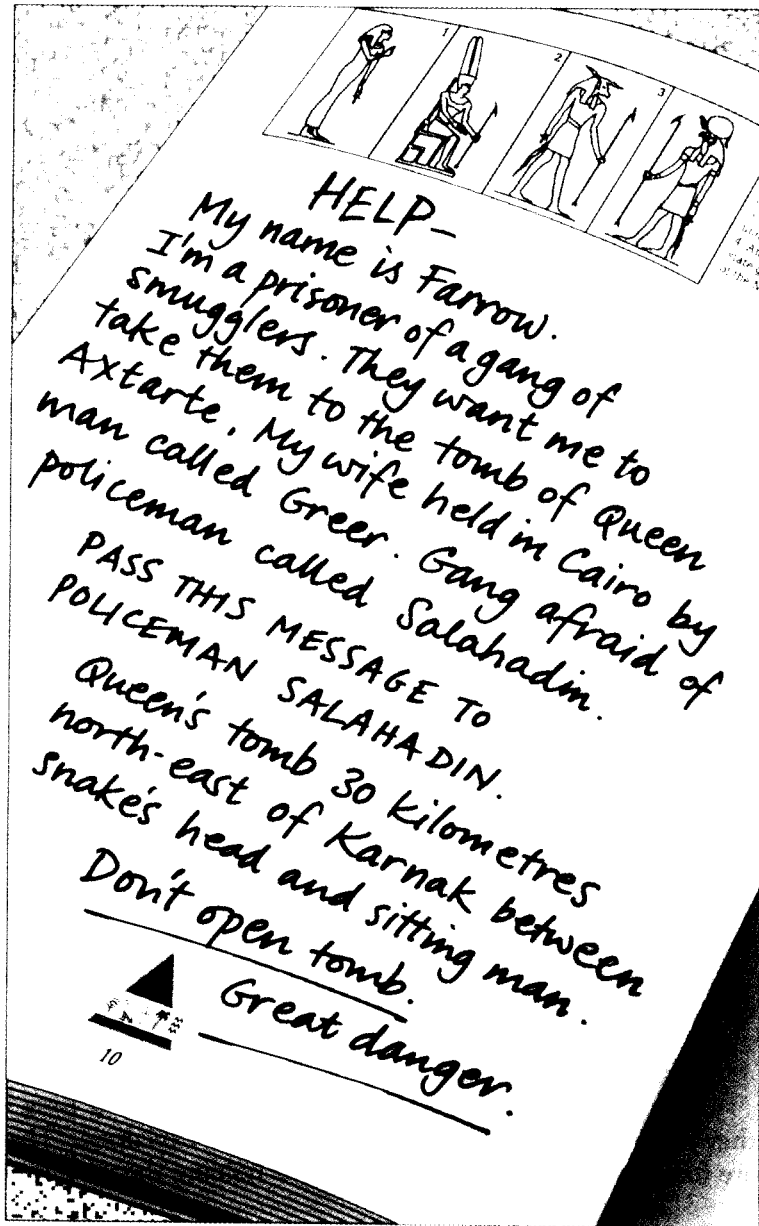 1
2
3
HELP-
My name is Farrow.
I'm a prisoner of a gang of
smugglers. They want me to
take them to the tomb of Queen
Axtarte. My wife held in Cairo by
man called Greer. Gang afraid of
policeman called Salahadin.
PASS THIS MESSAGE TO
POLICEMAN SALAHADIN.
Queen's tomb 30 kilometres
north-east of Karnak between
snake's head and sitting man.
Don't open tomb.
Great danger.
10